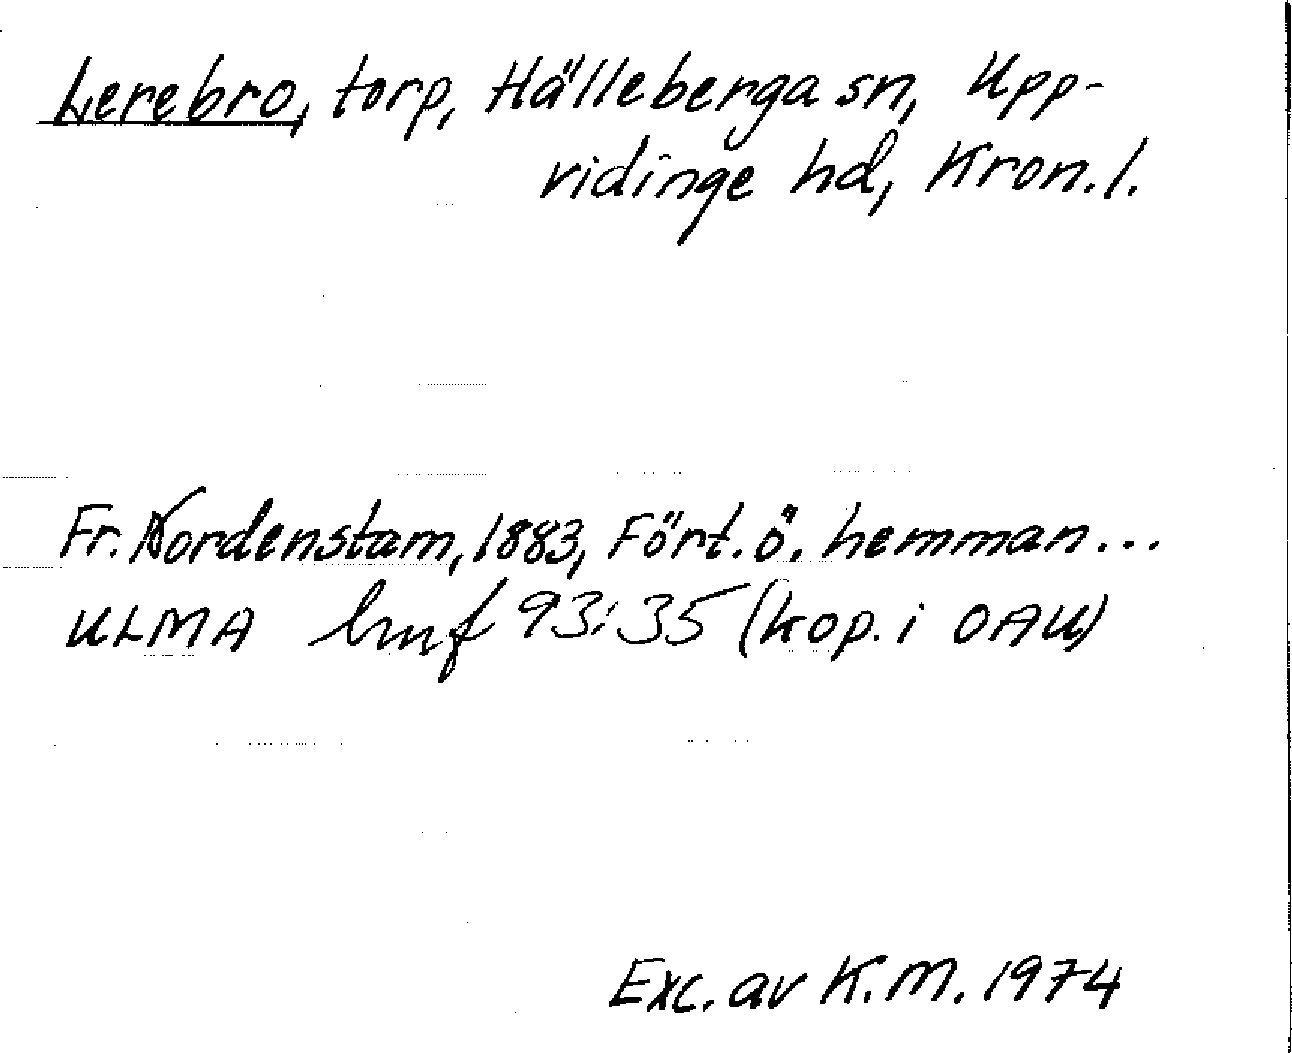 Lerebro, torp, Hälleberga sn, Upp-
vidinge hd, Kron. l.
Fr. Nordenstam, 1883, Fört. ö. hemman...
ULMA hmf 93:35 (kop. i OAU)
Exc. av K.M. 1974